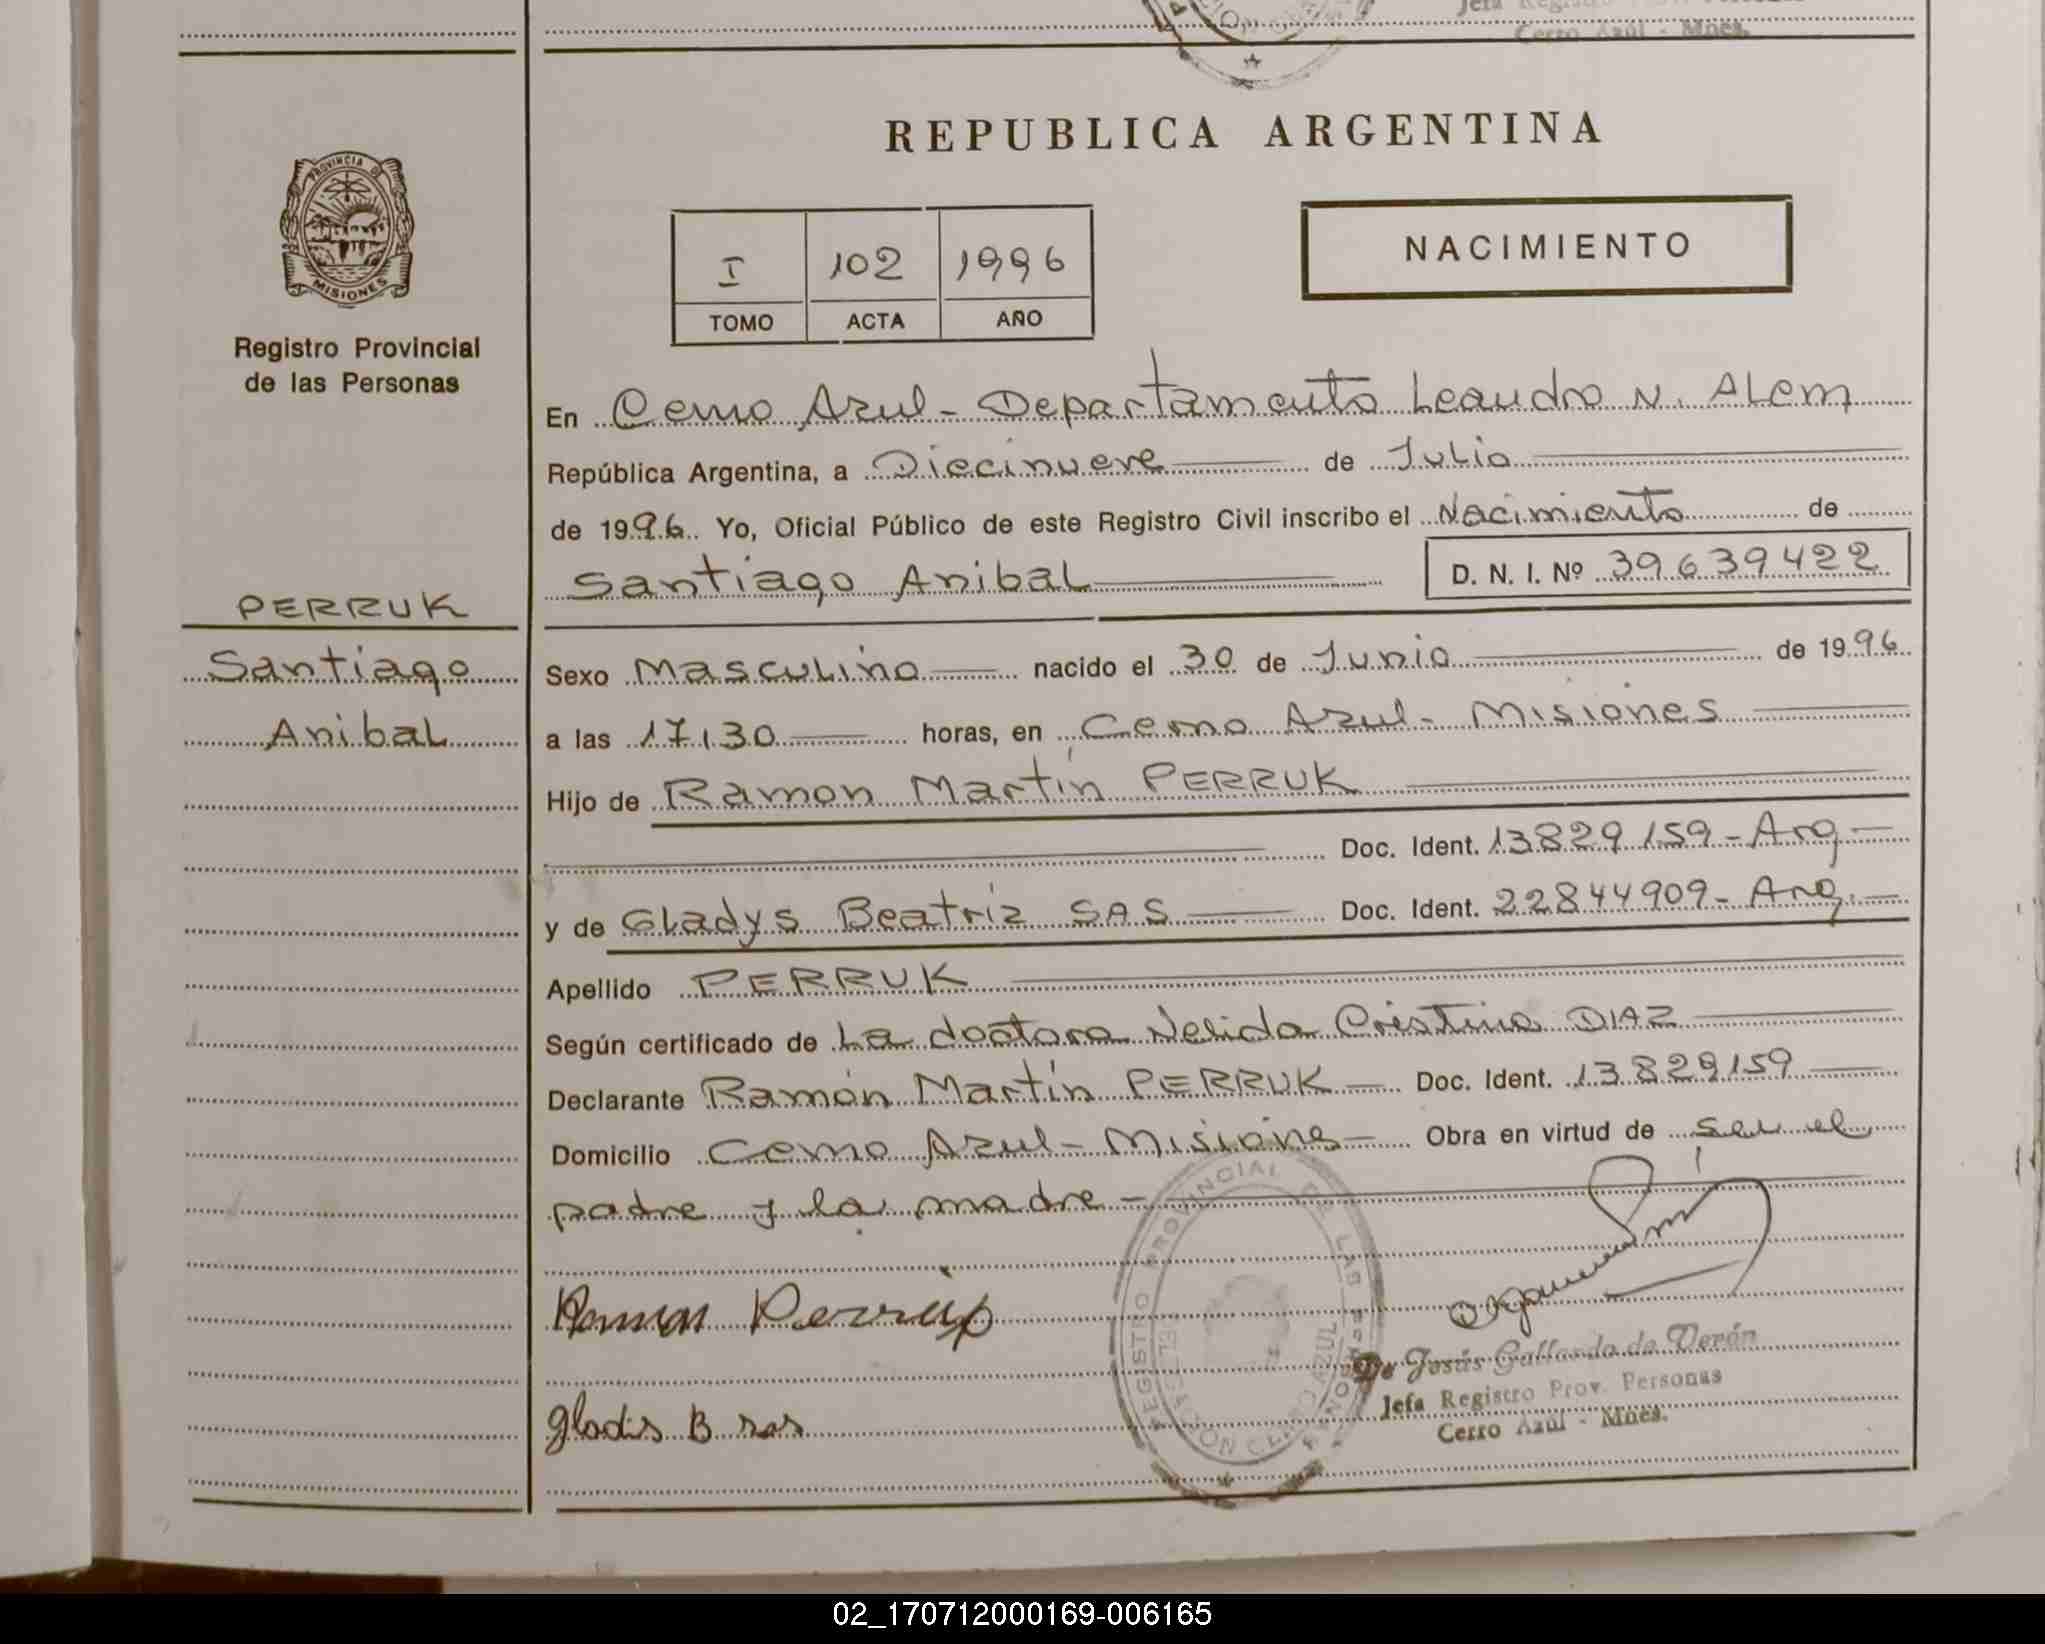 Jefa Registro Prov. Personas
Cerro Azúl - Mnes.
REPUBLICA ARGENTINA
PROVINCIA DE
MISIONES
Registro Provincial
de las Personas
I 102 1996
TOMO ACTA AÑO
NACIMIENTO
En Cerro Azul - Departamento Leandro N. Alem
República Argentina, a Diecinueve de Julio
de 1996 Yo, Oficial Público de este Registro Civil inscribo el Nacimiento de
Santiago Anibal D. N. I. Nº 39639422
PERRUK
Santiago
Anibal
Sexo Masculino nacido el 30 de Junio de 1996
a las 17,30 horas, en Cerro Azul - Misiones
Hijo de Ramon Martín PERRUK
Doc. Ident. 13829159 - Arg -
y de Gladys Beatriz SAS Doc. Ident. 22844909 - Arg. -
Apellido PERRUK
Según certificado de La doctora Nelida Cristina DIAZ
Declarante Ramón Martín PERRUK Doc. Ident. 13829159
Domicilio Cerro Azul - Misiones - Obra en virtud de ser el
padre y la madre -
REGISTRO PROVINCIAL DE LAS PERSONAS
CERRO AZUL
Ramon
Gladis B sas
De Jesús Gallardo de Verón
Jefa Registro Prov. Personas
Cerro Azúl - Mnes.
02_170712000169-006165